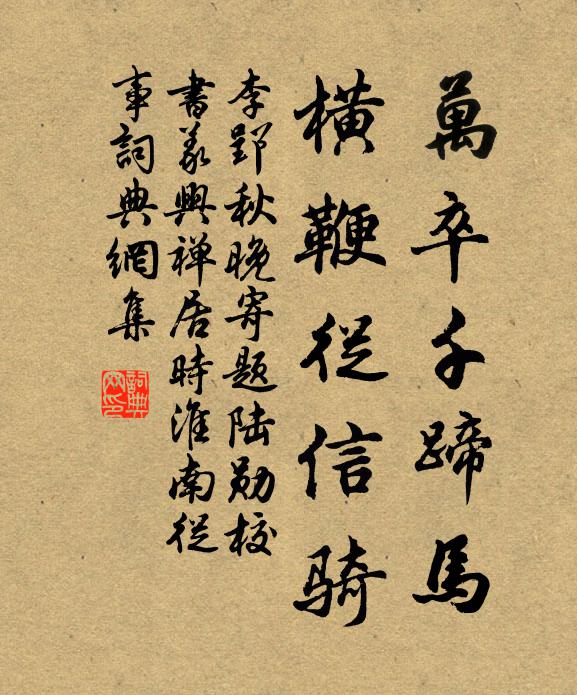 萬卒千蹄馬
橫鞭從信騎
李郢秋晚寄題陸勋校
書義興禅居時淮南從
事詞典網集
詞典
网印